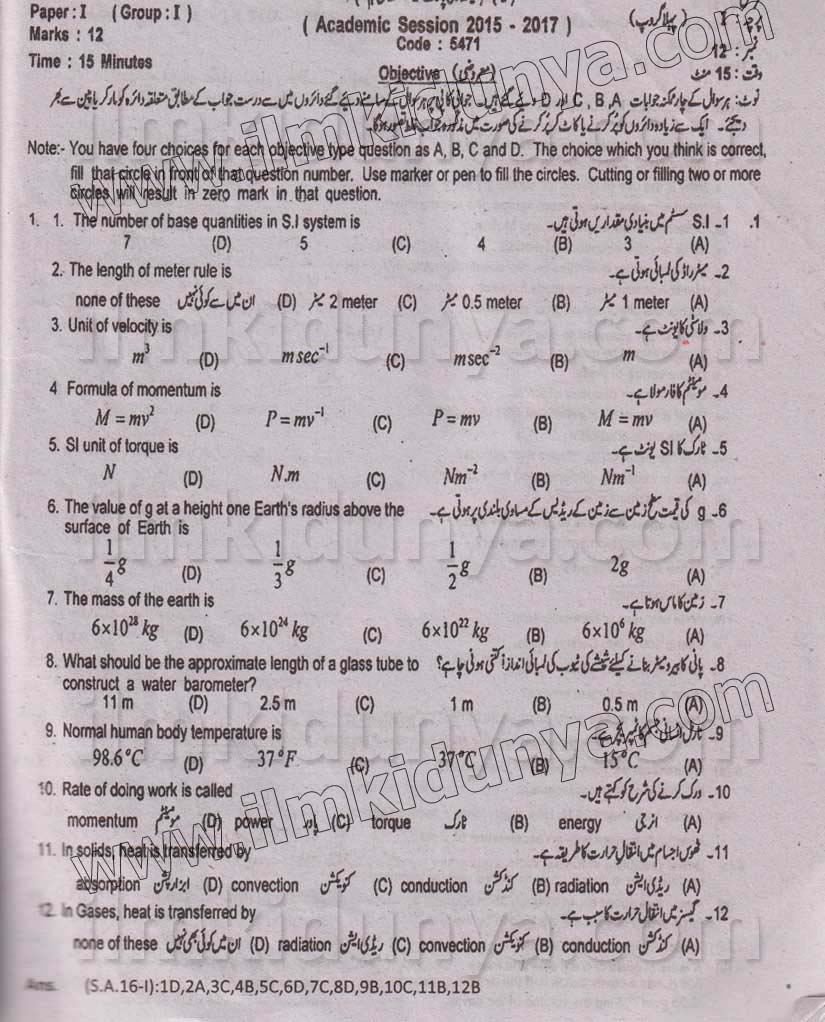 Paper: I ( Group: I )
Marks : 12
Time : 15 Minutes
( Academic Session 2015 - 2017 )
Code : 5471
Objective (معروضی)
پرچہ : I (پہلا گروپ)
نمبر : 12
وقت : 15 منٹ
نوٹ: ہر سوال کے چار ممکنہ جوابات A, B, C اور D دیئے گئے ہیں۔ جوابی کاپی پر ہر سوال کے سامنے دیئے گئے دائروں میں سے درست جواب کے مطابق متعلقہ دائرہ کو مارکر یا پین سے بھر
دیجئے۔ ایک سے زیادہ دائروں کو پُر کرنے یا کاٹ کر پُر کرنے کی صورت میں مذکورہ جواب غلط تصور ہوگا۔
Note:- You have four choices for each objective type question as A, B, C and D. The choice which you think is correct,
fill that circle in front of that question number. Use marker or pen to fill the circles. Cutting or filling two or more
circles will result in zero mark in that question.
1. 1. The number of base quantities in S.I system is S.I -1 سسٹم میں بنیادی مقداریں ہوتی ہیں۔ .1
7 (D) 5 (C) 4 (B) 3 (A)
2. The length of meter rule is 2۔ میٹر راڈ کی لمبائی ہوتی ہے۔
none of these ان میں سے کوئی نہیں (D) 2 meter میٹر (C) 0.5 meter میٹر (B) 1 meter میٹر (A)
3. Unit of velocity is 3۔ ولاسٹی کا یونٹ ہے۔
m³ (D) msec⁻¹ (C) msec⁻² (B) m (A)
4 Formula of momentum is 4۔ مومینٹم کا فارمولا ہے۔
M = mv² (D) P = mv⁻¹ (C) P = mv (B) M = mv (A)
5. SI unit of torque is 5۔ ٹارک کا SI یونٹ ہے۔
N (D) N.m (C) Nm⁻² (B) Nm⁻¹ (A)
6. The value of g at a height one Earth's radius above the 6۔ g کی قیمت سطح زمین سے زمین کے ریڈیس کے مساوی بلندی پر ہوتی ہے۔
surface of Earth is
1/4 g (D) 1/3 g (C) 1/2 g (B) 2g (A)
7. The mass of the earth is 7۔ زمین کا ماس ہوتا ہے۔
6×10²⁸ kg (D) 6×10²⁴ kg (C) 6×10²² kg (B) 6×10⁶ kg (A)
8. What should be the approximate length of a glass tube to 8۔ پانی کا بیرومیٹر بنانے کیلئے شیشے کی ٹیوب کی لمبائی اندازاً کتنی ہونی چاہیے؟
construct a water barometer?
11 m (D) 2.5 m (C) 1 m (B) 0.5 m (A)
9. Normal human body temperature is 9۔ نارمل انسانی جسم کا ٹمپریچر ہے۔
98.6°C (D) 37°F (C) 37°C (B) 15°C (A)
10. Rate of doing work is called 10۔ ورک کرنے کی شرح کو کہتے ہیں۔
momentum مومینٹم (D) power پاور (C) torque ٹارک (B) energy انرجی (A)
11. In solids, heat is transferred by 11۔ ٹھوس اجسام میں انتقال حرارت کا طریقہ ہے۔
absorption ابزارپشن (D) convection کنویکشن (C) conduction کنڈکشن (B) radiation ریڈی ایشن (A)
12. In Gases, heat is transferred by 12۔ گیسز میں انتقال حرارت کا سبب ہے۔
none of these ان میں کوئی بھی نہیں (D) radiation ریڈی ایشن (C) convection کنویکشن (B) conduction کنڈکشن (A)
Ans. (S.A.16-I):1D,2A,3C,4B,5C,6D,7C,8D,9B,10C,11B,12B
www.ilmkidunya.com
ilmkidunya.com
ilmkidunya.com
ilmkidunya.com
www.ilmkidunya.com